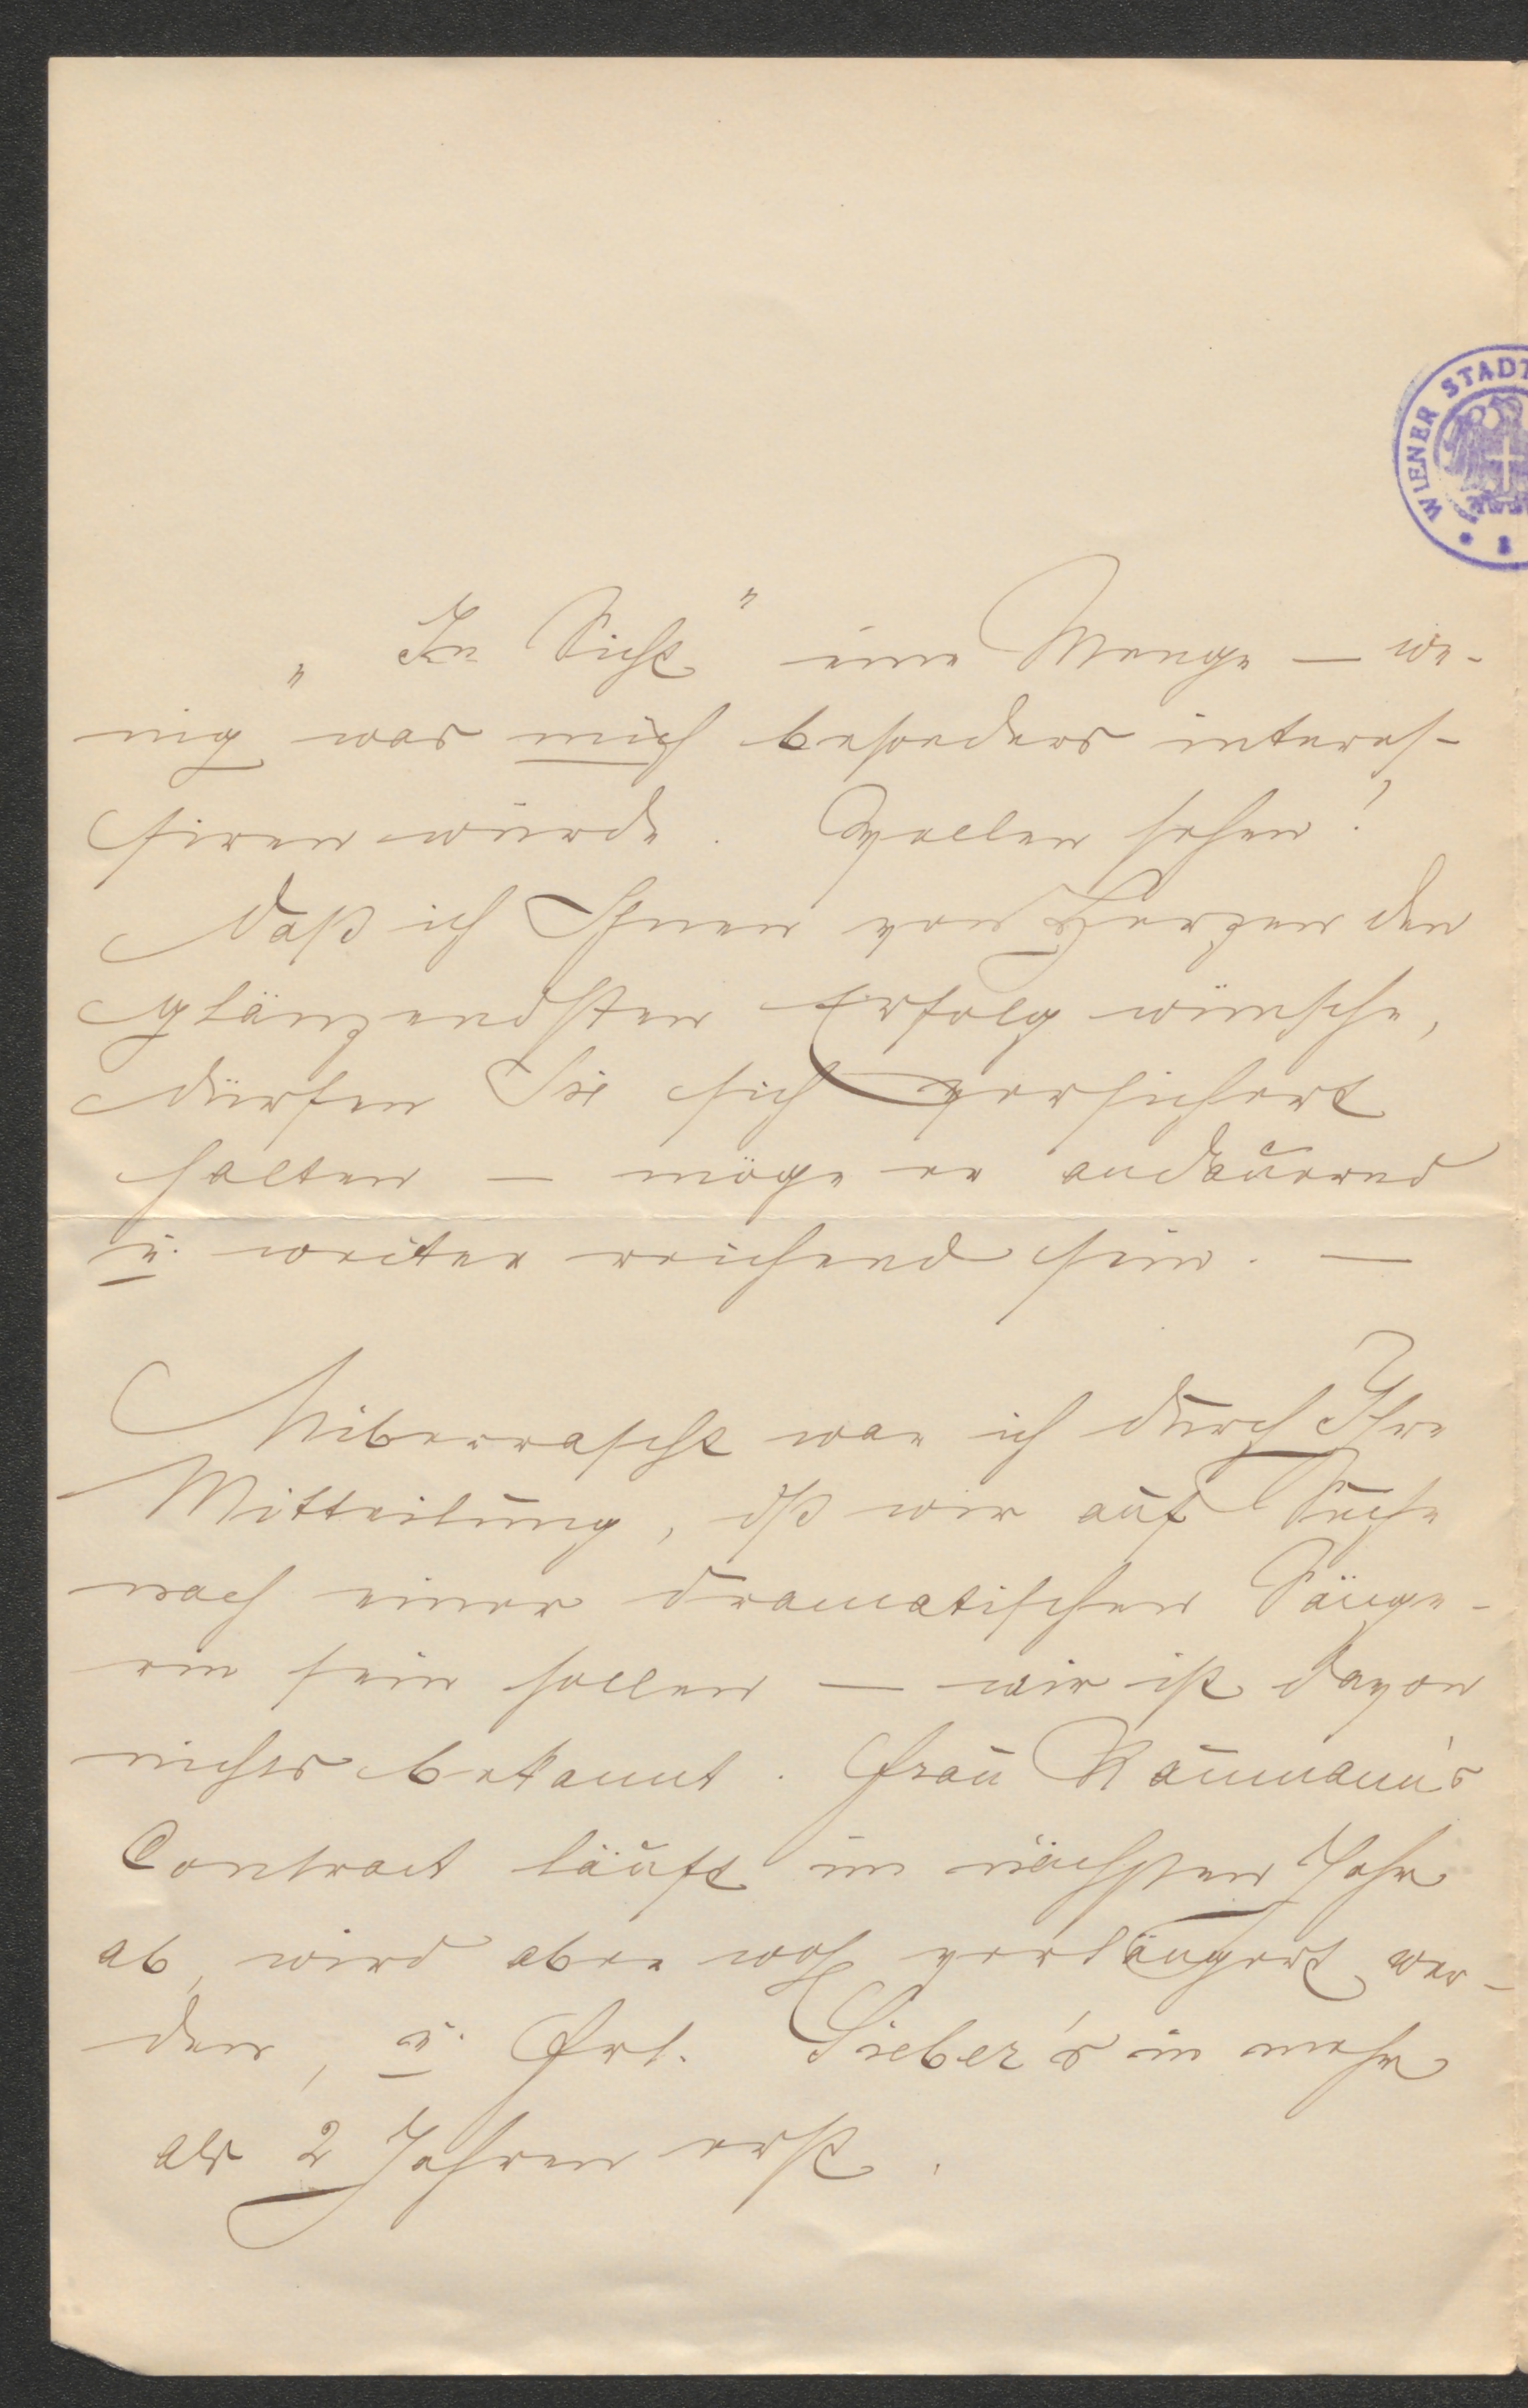 WIENER STADT
„In Sicht" eine Menge — we-
nig was mich besonders interes-
siren würde. Wollen sehen!
Daß ich Ihnen von Herzen den
glänzendsten Erfolg wünsche,
dürfen Sie sich versichert
halten — möge er andauernd
u. weiter reichend sein. —
Überrascht war ich durch Ihre
Mitteilung, dß wir auf Suche
nach einer dramatischen Sänge-
rin sein sollen — mir ist davon
nichts bekannt. Frau Naumann's
Contract läuft im nächsten Jahr
ab, wird aber wohl verlängert wer-
den, u. Frl. Sieber's in mehr
als 2 Jahren erst.